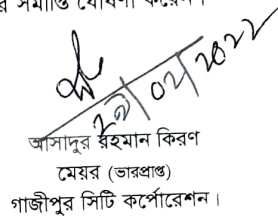 সমাপ্তি ঘোষণা করেন।
আসাদুর রহমান কিরণ
মেয়র (ভারপ্রাপ্ত)
গাজীপুর সিটি কর্পোরেশন।